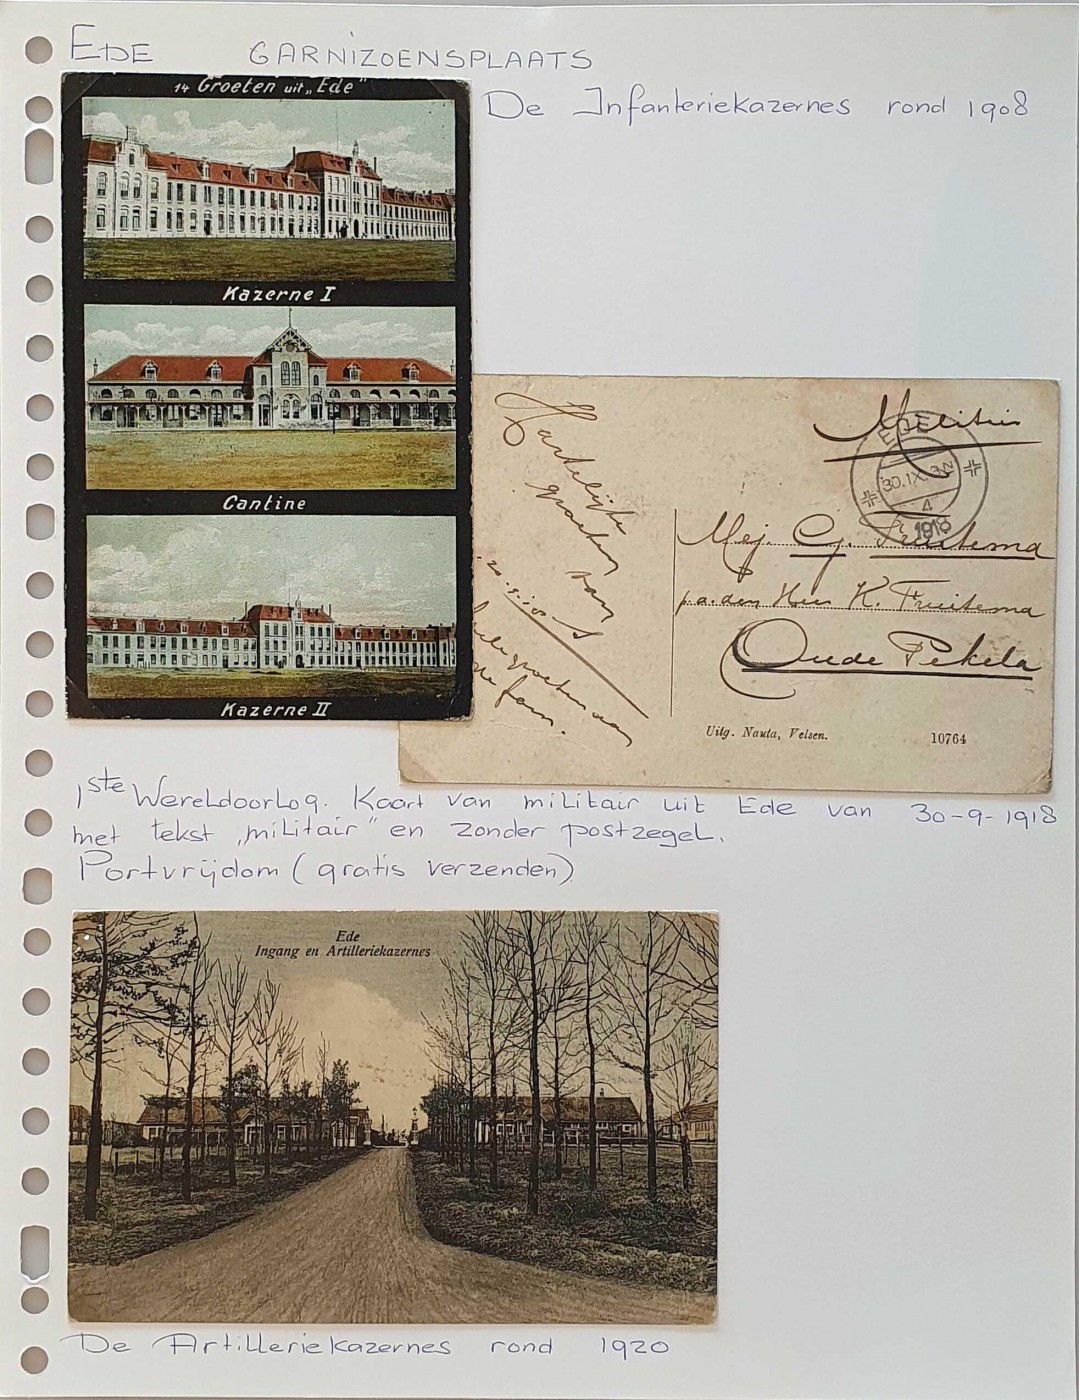 EDE GARNIZOENSPLAATS
De Infanteriekazernes rond 1908
14 Groeten uit „Ede"
Kazerne I
Cantine
Kazerne II
Militair
EDE
30.IX. 3N
4
1918
Mej. G. Fruitema
p.a. den Heer K. Fruitema
Oude Pekela
Hartelijke
groeten
van
vele groeten aan
fam.
Uitg. Nauta, Velsen. 10764
1ste Wereldoorlog. Kaart van militair uit Ede van 30-9-1918
met tekst „militair" en zonder postzegel.
Portvrijdom (gratis verzenden)
Ede
Ingang en Artilleriekazernes
De Artilleriekazernes rond 1920